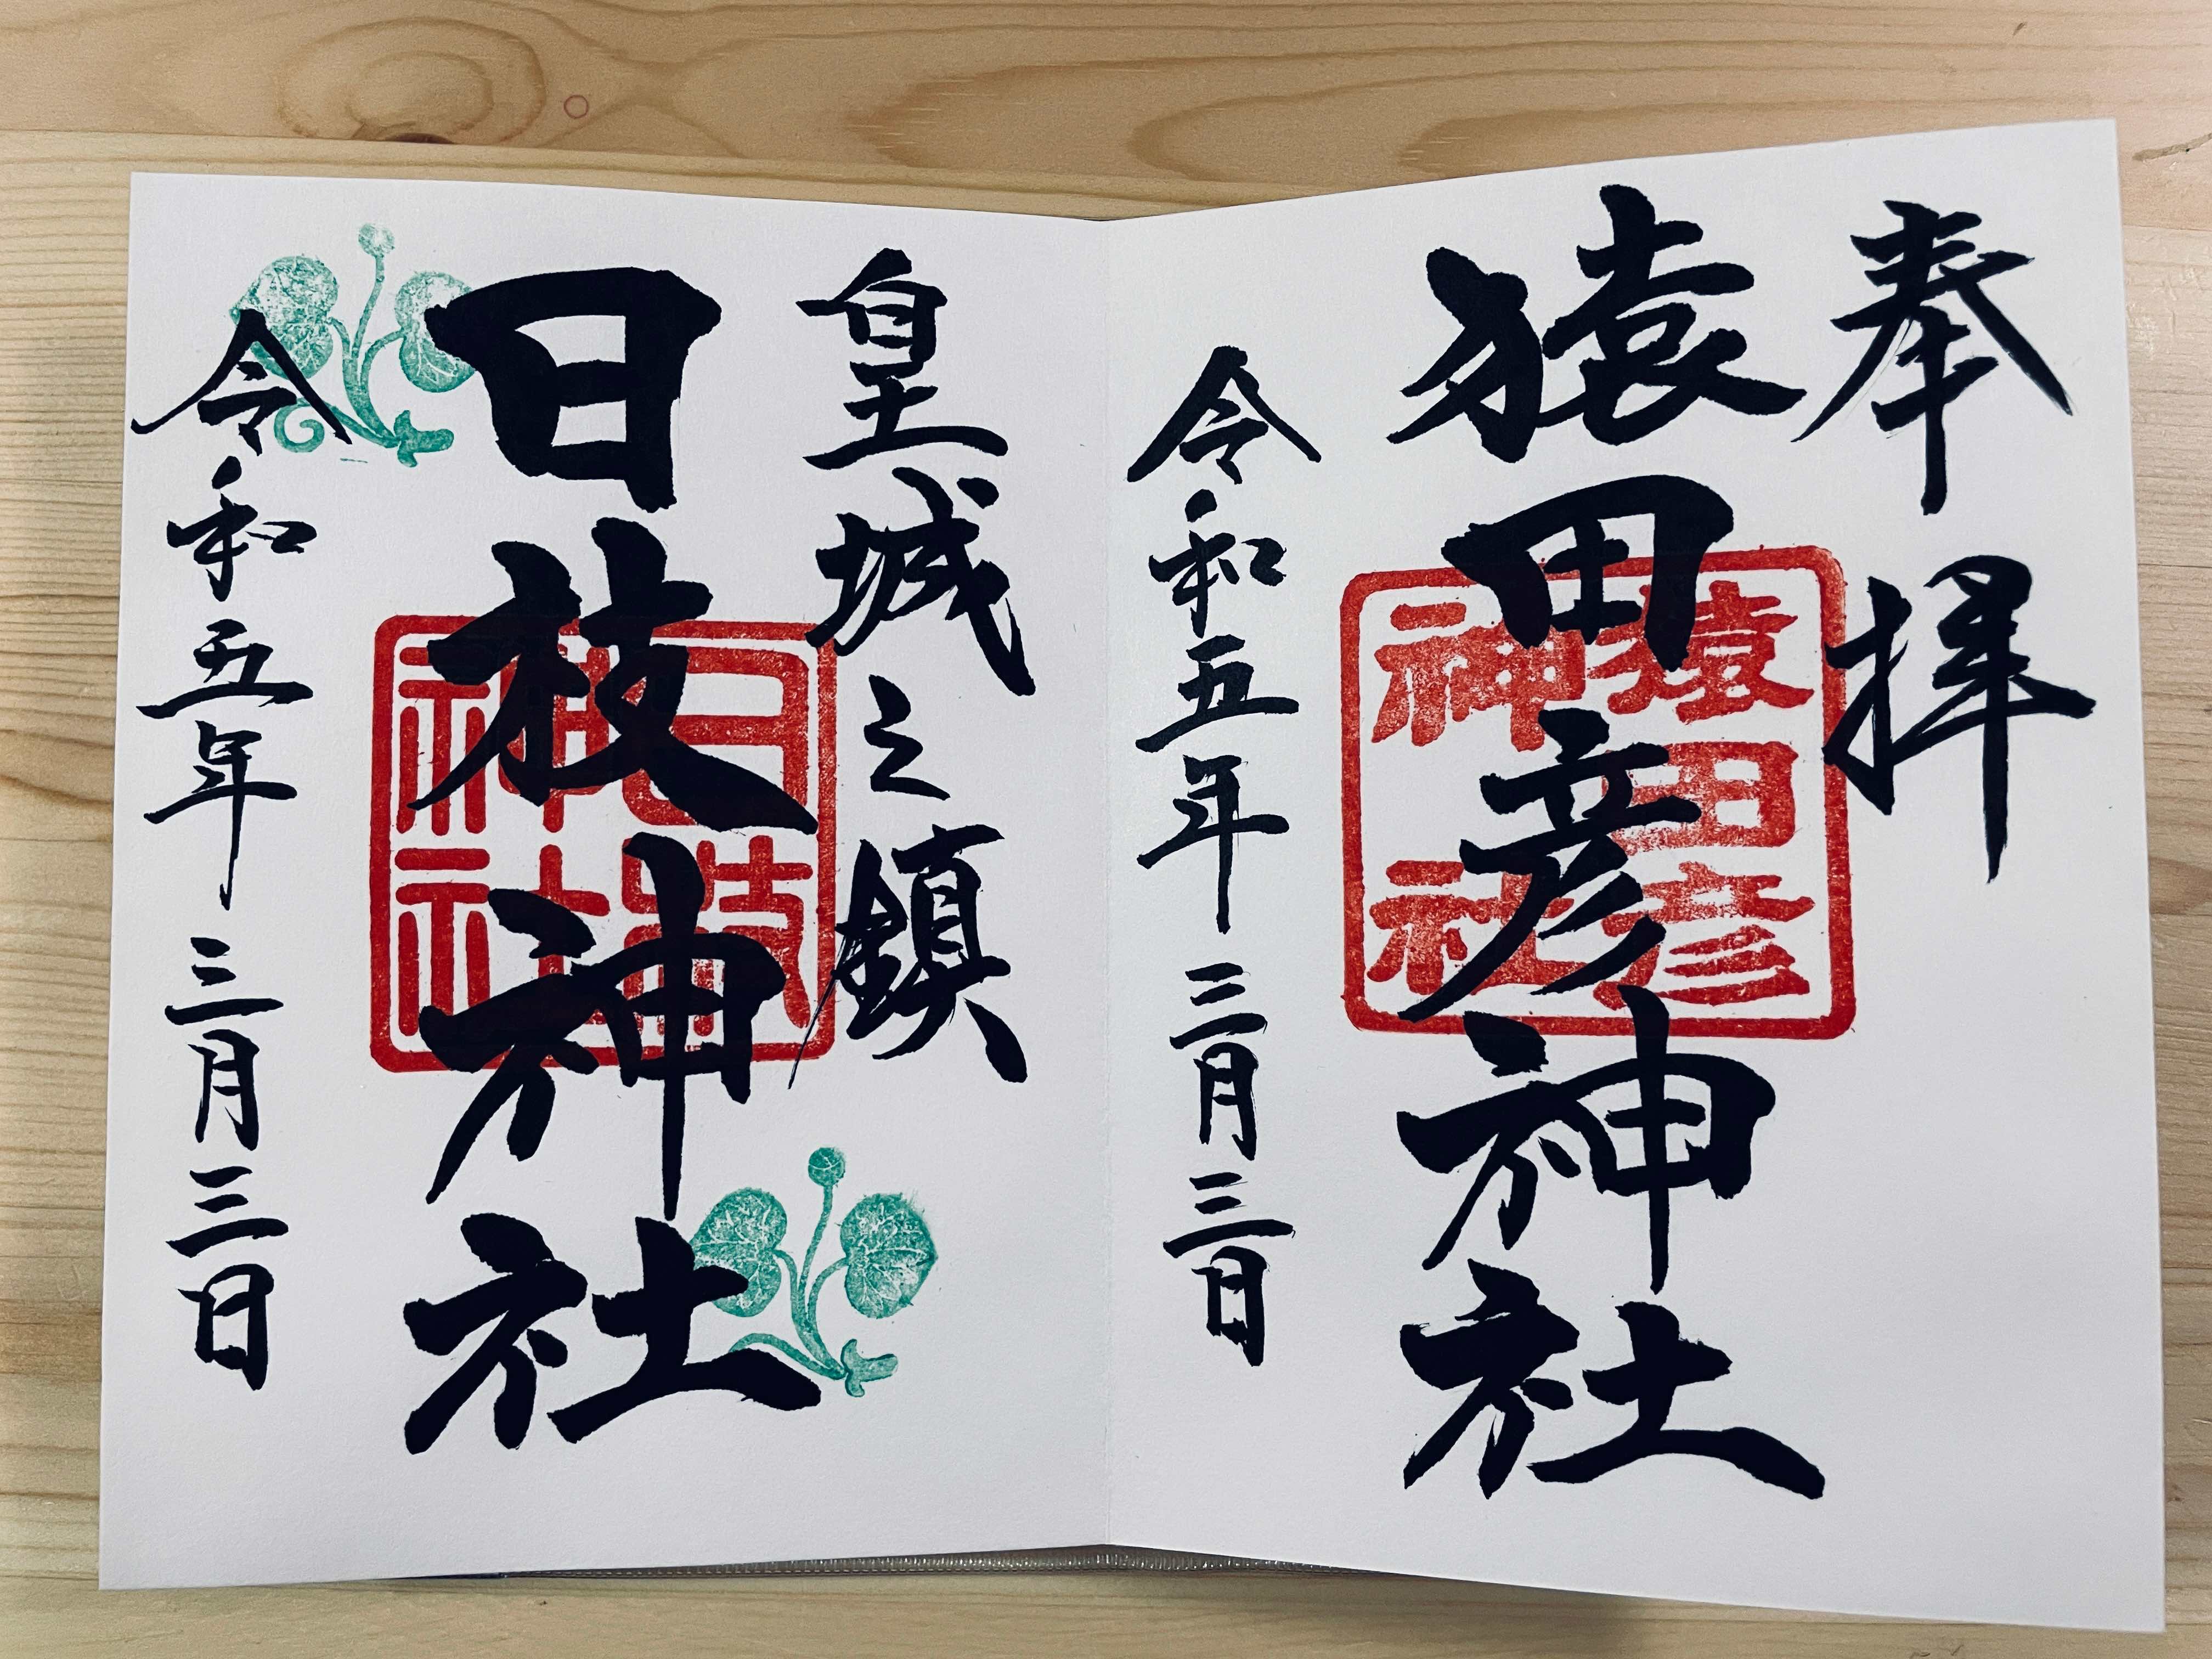 奉拝
猿田彦神社
猿田彦
神社
令和五年三月三日
皇城之鎮
日枝神社
日枝
神社
令和五年三月三日